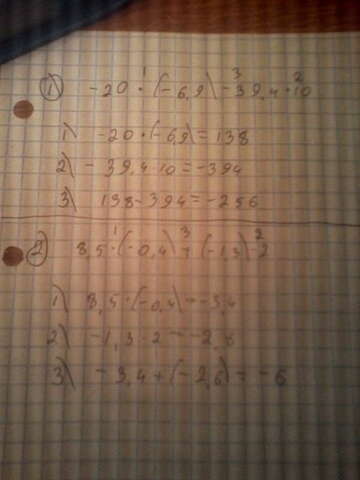 ① -20 · (-6,9) - 39,4 · 10
1) -20 · (-6,9) = 138
2) - 39,4 · 10 = -394
3) 138 - 394 = -256
② 8,5 · (-0,4) + (-1,3) · 2
1) 8,5 · (-0,4) = -3,4
2) -1,3 · 2 = -2,6
3) -3,4 + (-2,6) = -6